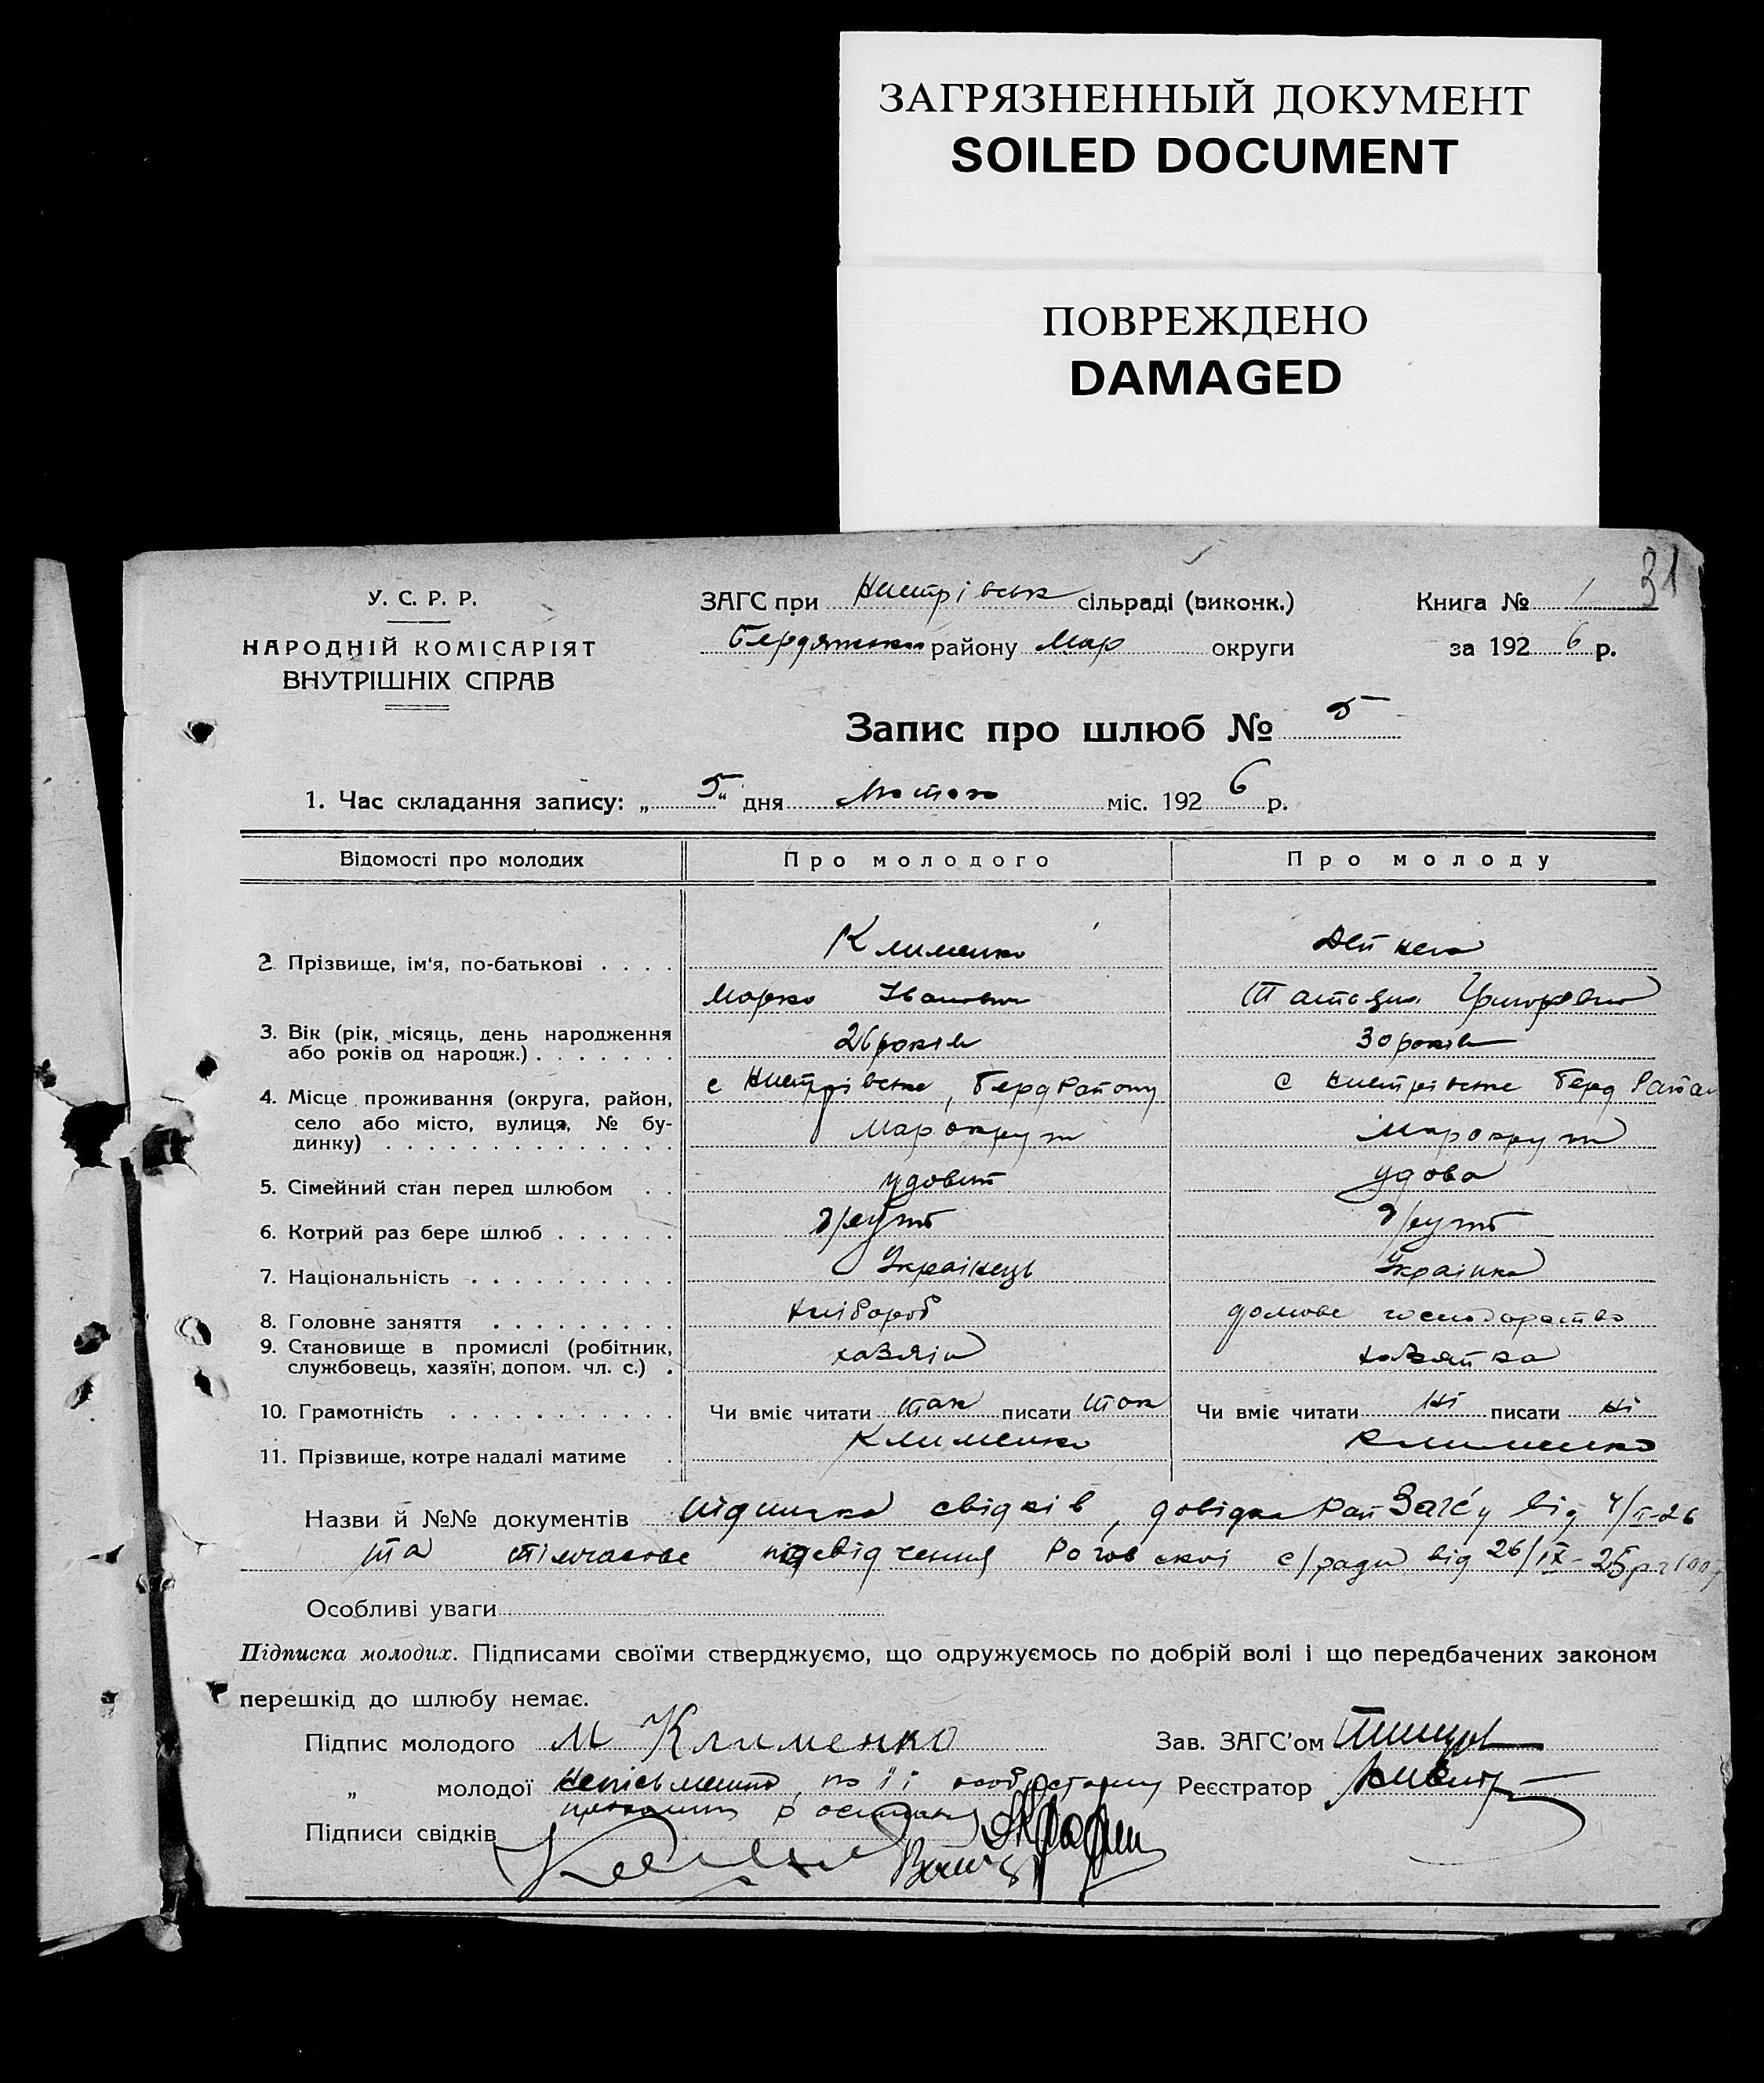 ЗАГРЯЗНЕННЫЙ ДОКУМЕНТ
SOILED DOCUMENT
ПОВРЕЖДЕНО
DAMAGED
31
У. С. Р. Р.
НАРОДНІЙ КОМІСАРІЯТ
ВНУТРІШНІХ СПРАВ
ЗАГС при сільраді (виконк.)
району Мар округи
Книга № 1
за 1926 р.
Запис про шлюб № 5
1. Час складання запису: „5" дня Лютого міс. 1926 р.
Відомості про молодих Про молодого Про молоду
2. Прізвище, ім'я, по-батькові . . . . Клименко
Марко Іванович Григоревна
3. Вік (рік, місяць, день народження 26 років 30 років
або років од народж.) . . . . . . .
4. Місце проживання (округа, район, с Берд Району с Берд
село або місто, вулиця, № бу- Мар округи Мар округи
динку) . . . . . . . . . . . . . .
5. Сімейний стан перед шлюбом . . удовець удова
6. Котрий раз бере шлюб . . . . . .
7. Національність . . . . . . . . . . Українець Українка
8. Головне заняття . . . . . . . . . хлібороб домове господарство
9. Становище в промислі (робітник, хазяїн хазяйка
службовець, хазяїн, допом. чл. с.) .
10. Грамотність . . . . . . . . . . . Чи вміє читати так писати так Чи вміє читати ні писати ні
11. Прізвище, котре надалі матиме . Клименко Клименко
Назви й №№ документів підписка свідків, довідка Рай Загсу від 4/II-26
та тімчасове посвідчення с/ради від 26/IX-25р
Особливі уваги
Підписка молодих. Підписами своїми стверджуємо, що одружуємось по добрій волі і що передбачених законом
перешкід до шлюбу немає.
Підпис молодого М Клименко Зав. ЗАГС'ом
„ молодої неписьменна, по її Реєстратор
Підписи свідків